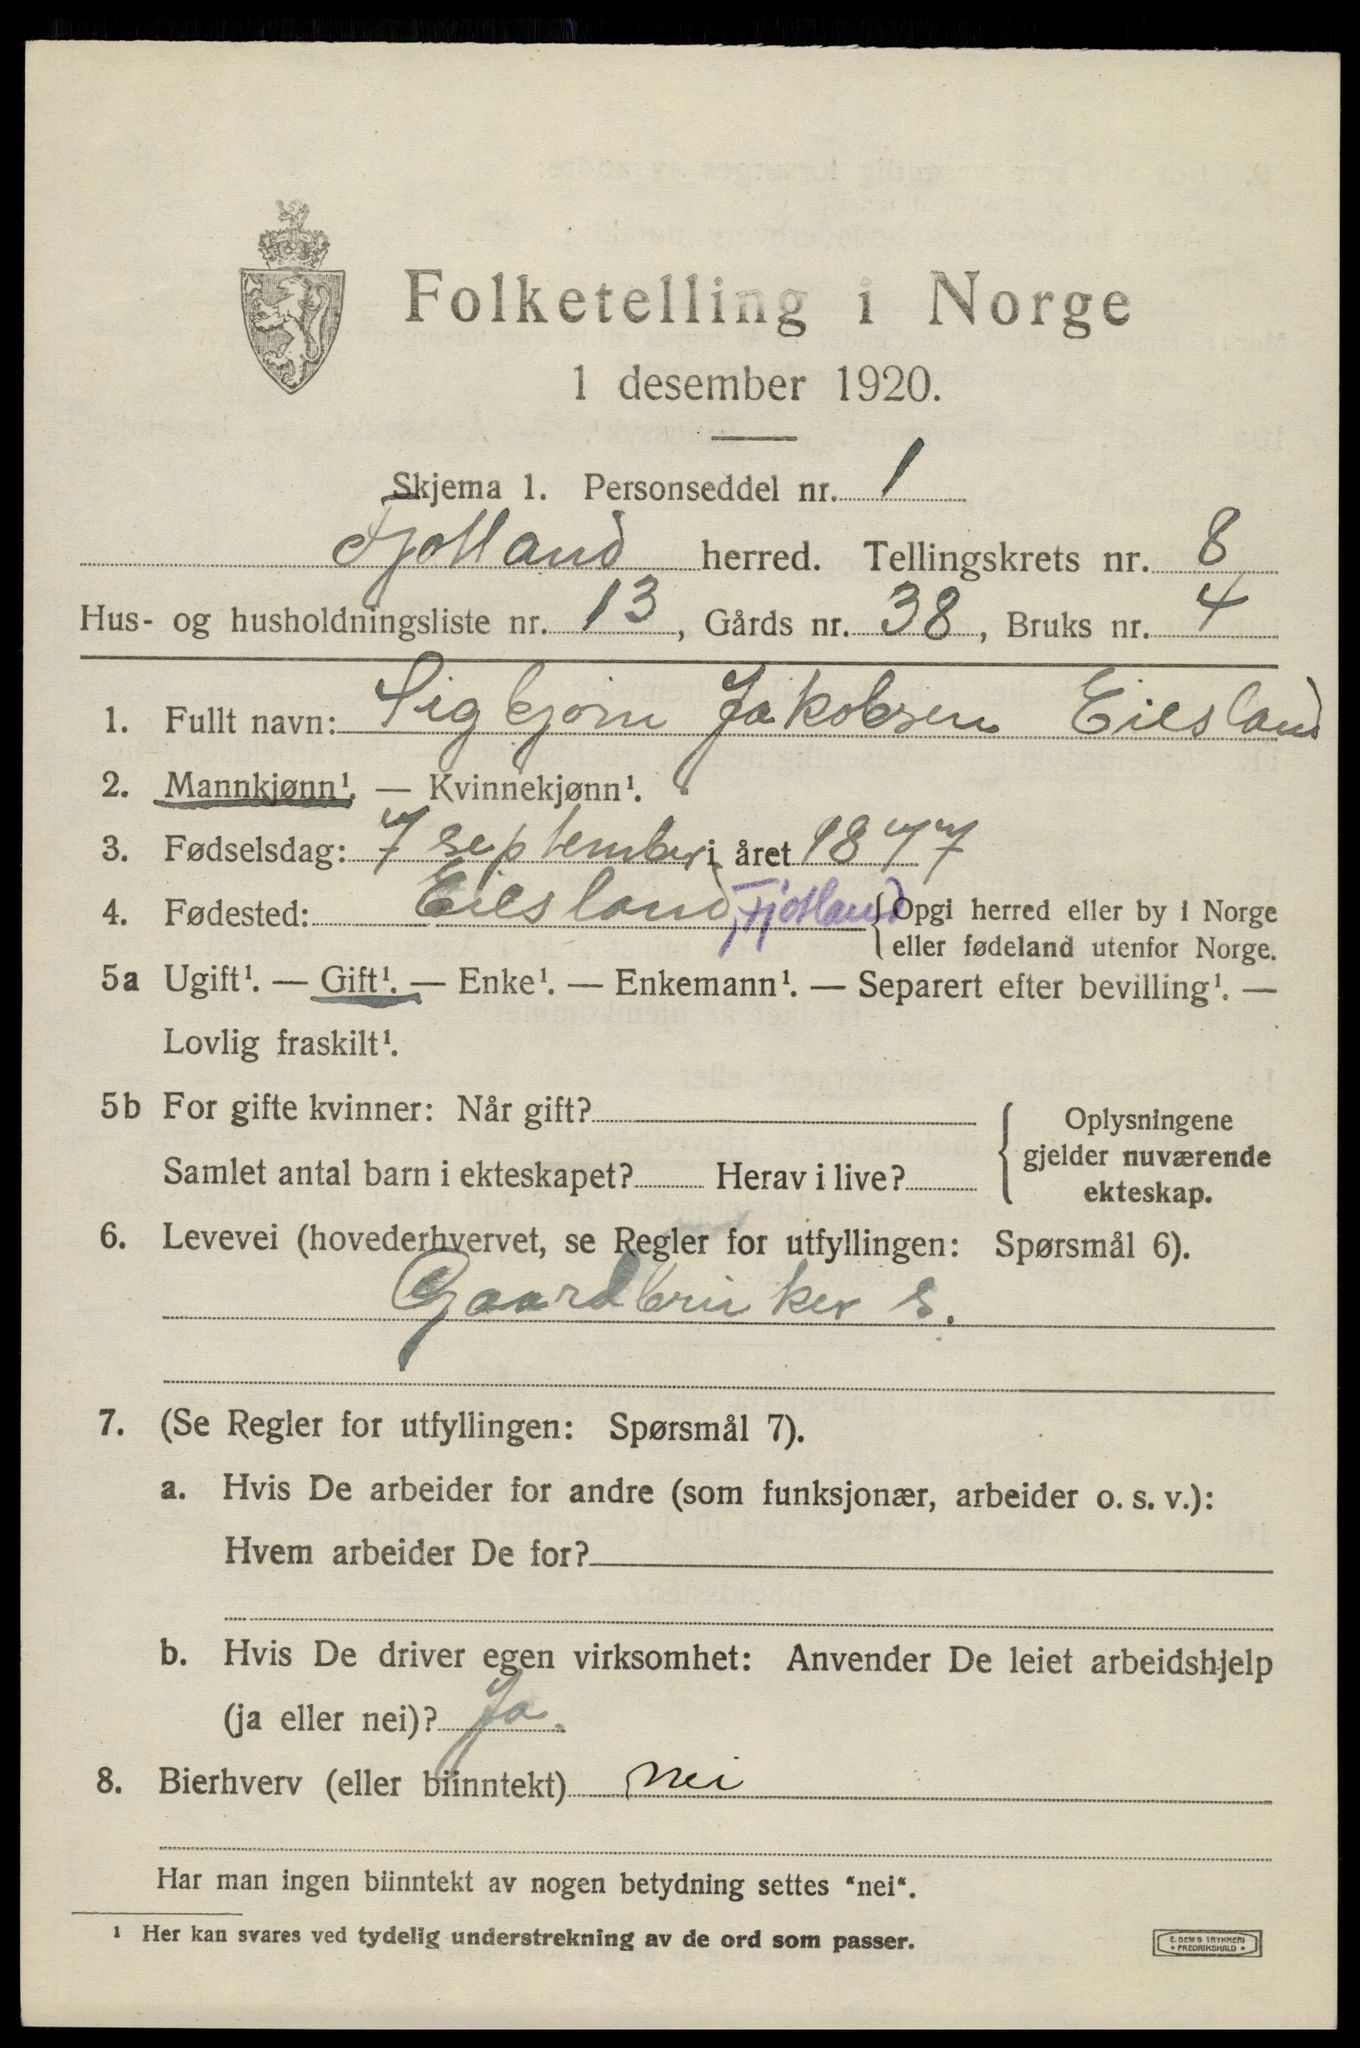 Folketelling i Norge
1 desember 1920.
Skjema 1. Personseddel nr. 1
Fjotland herred. Tellingskrets nr. 8
Hus- og husholdningsliste nr. 13, Gårds nr. 38, Bruks nr. 4
1. Fullt navn: Sigbjørn Jakobsen Eiesland
2. Mannkjønn¹. — Kvinnekjønn¹.
3. Fødselsdag: 7 september i året 1877
4. Fødested: Eiesland, Fjotland {Opgi herred eller by i Norge
eller fødeland utenfor Norge.
5a Ugift¹. — Gift¹. — Enke¹. — Enkemann¹. — Separert efter bevilling¹. —
Lovlig fraskilt¹.
5b For gifte kvinner: Når gift?
Samlet antal barn i ekteskapet? Herav i live?
{ Oplysningene
gjelder nuværende
ekteskap.
6. Levevei (hovederhvervet, se Regler for utfyllingen: Spørsmål 6).
Gaardbruker s.
7. (Se Regler for utfyllingen: Spørsmål 7).
a. Hvis De arbeider for andre (som funksjonær, arbeider o. s. v.):
Hvem arbeider De for?
b. Hvis De driver egen virksomhet: Anvender De leiet arbeidshjelp
(ja eller nei)? Ja.
8. Bierhverv (eller biinntekt) nei
Har man ingen biinntekt av nogen betydning settes "nei".
¹ Her kan svares ved tydelig understrekning av de ord som passer.
E. SEM'S TRYKKERI
• FREDRIKSHALD •